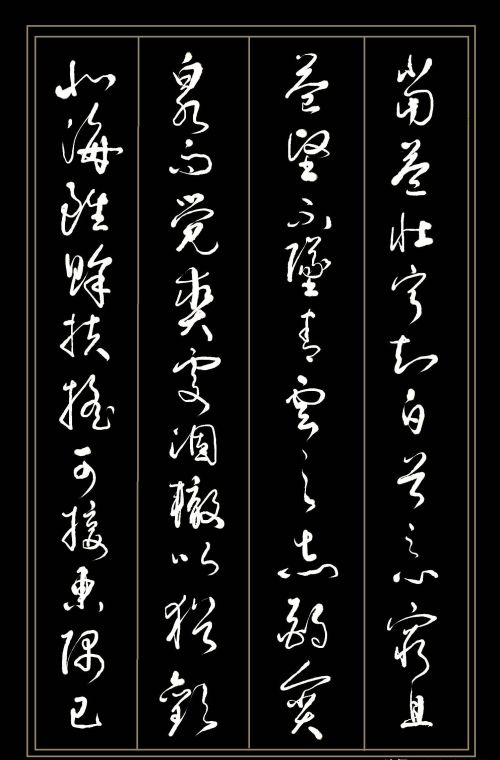 當益壯寧知白首之心窮且
益堅不墜青雲之志酌貪
泉而覺爽處涸轍以猶歡
北海雖賒扶搖可接東隅已